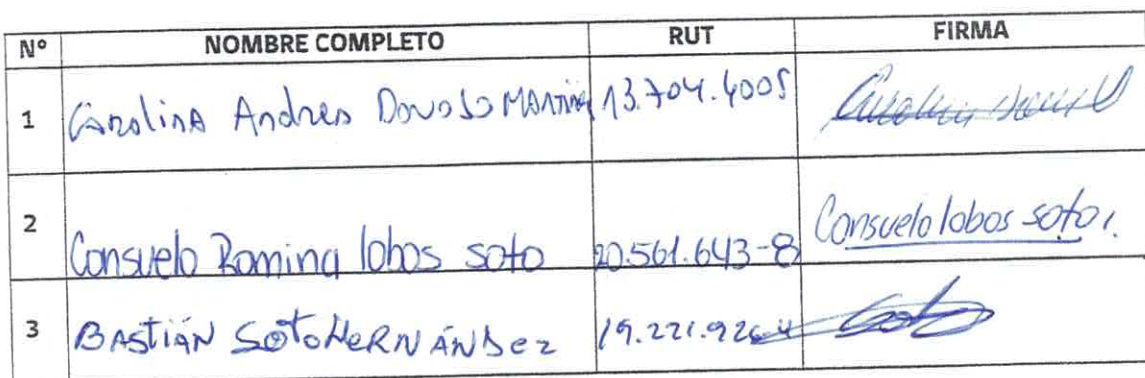 Nº NOMBRE COMPLETO RUT FIRMA
1 Carolina Andrea Donoso Martinez 13.704.4005
2 Consuelo Romina lobos soto 20.561.643-8 Consuelo lobos soto.
3 BASTIÁN SOTO HERNÁNDEZ 19.221.926-4